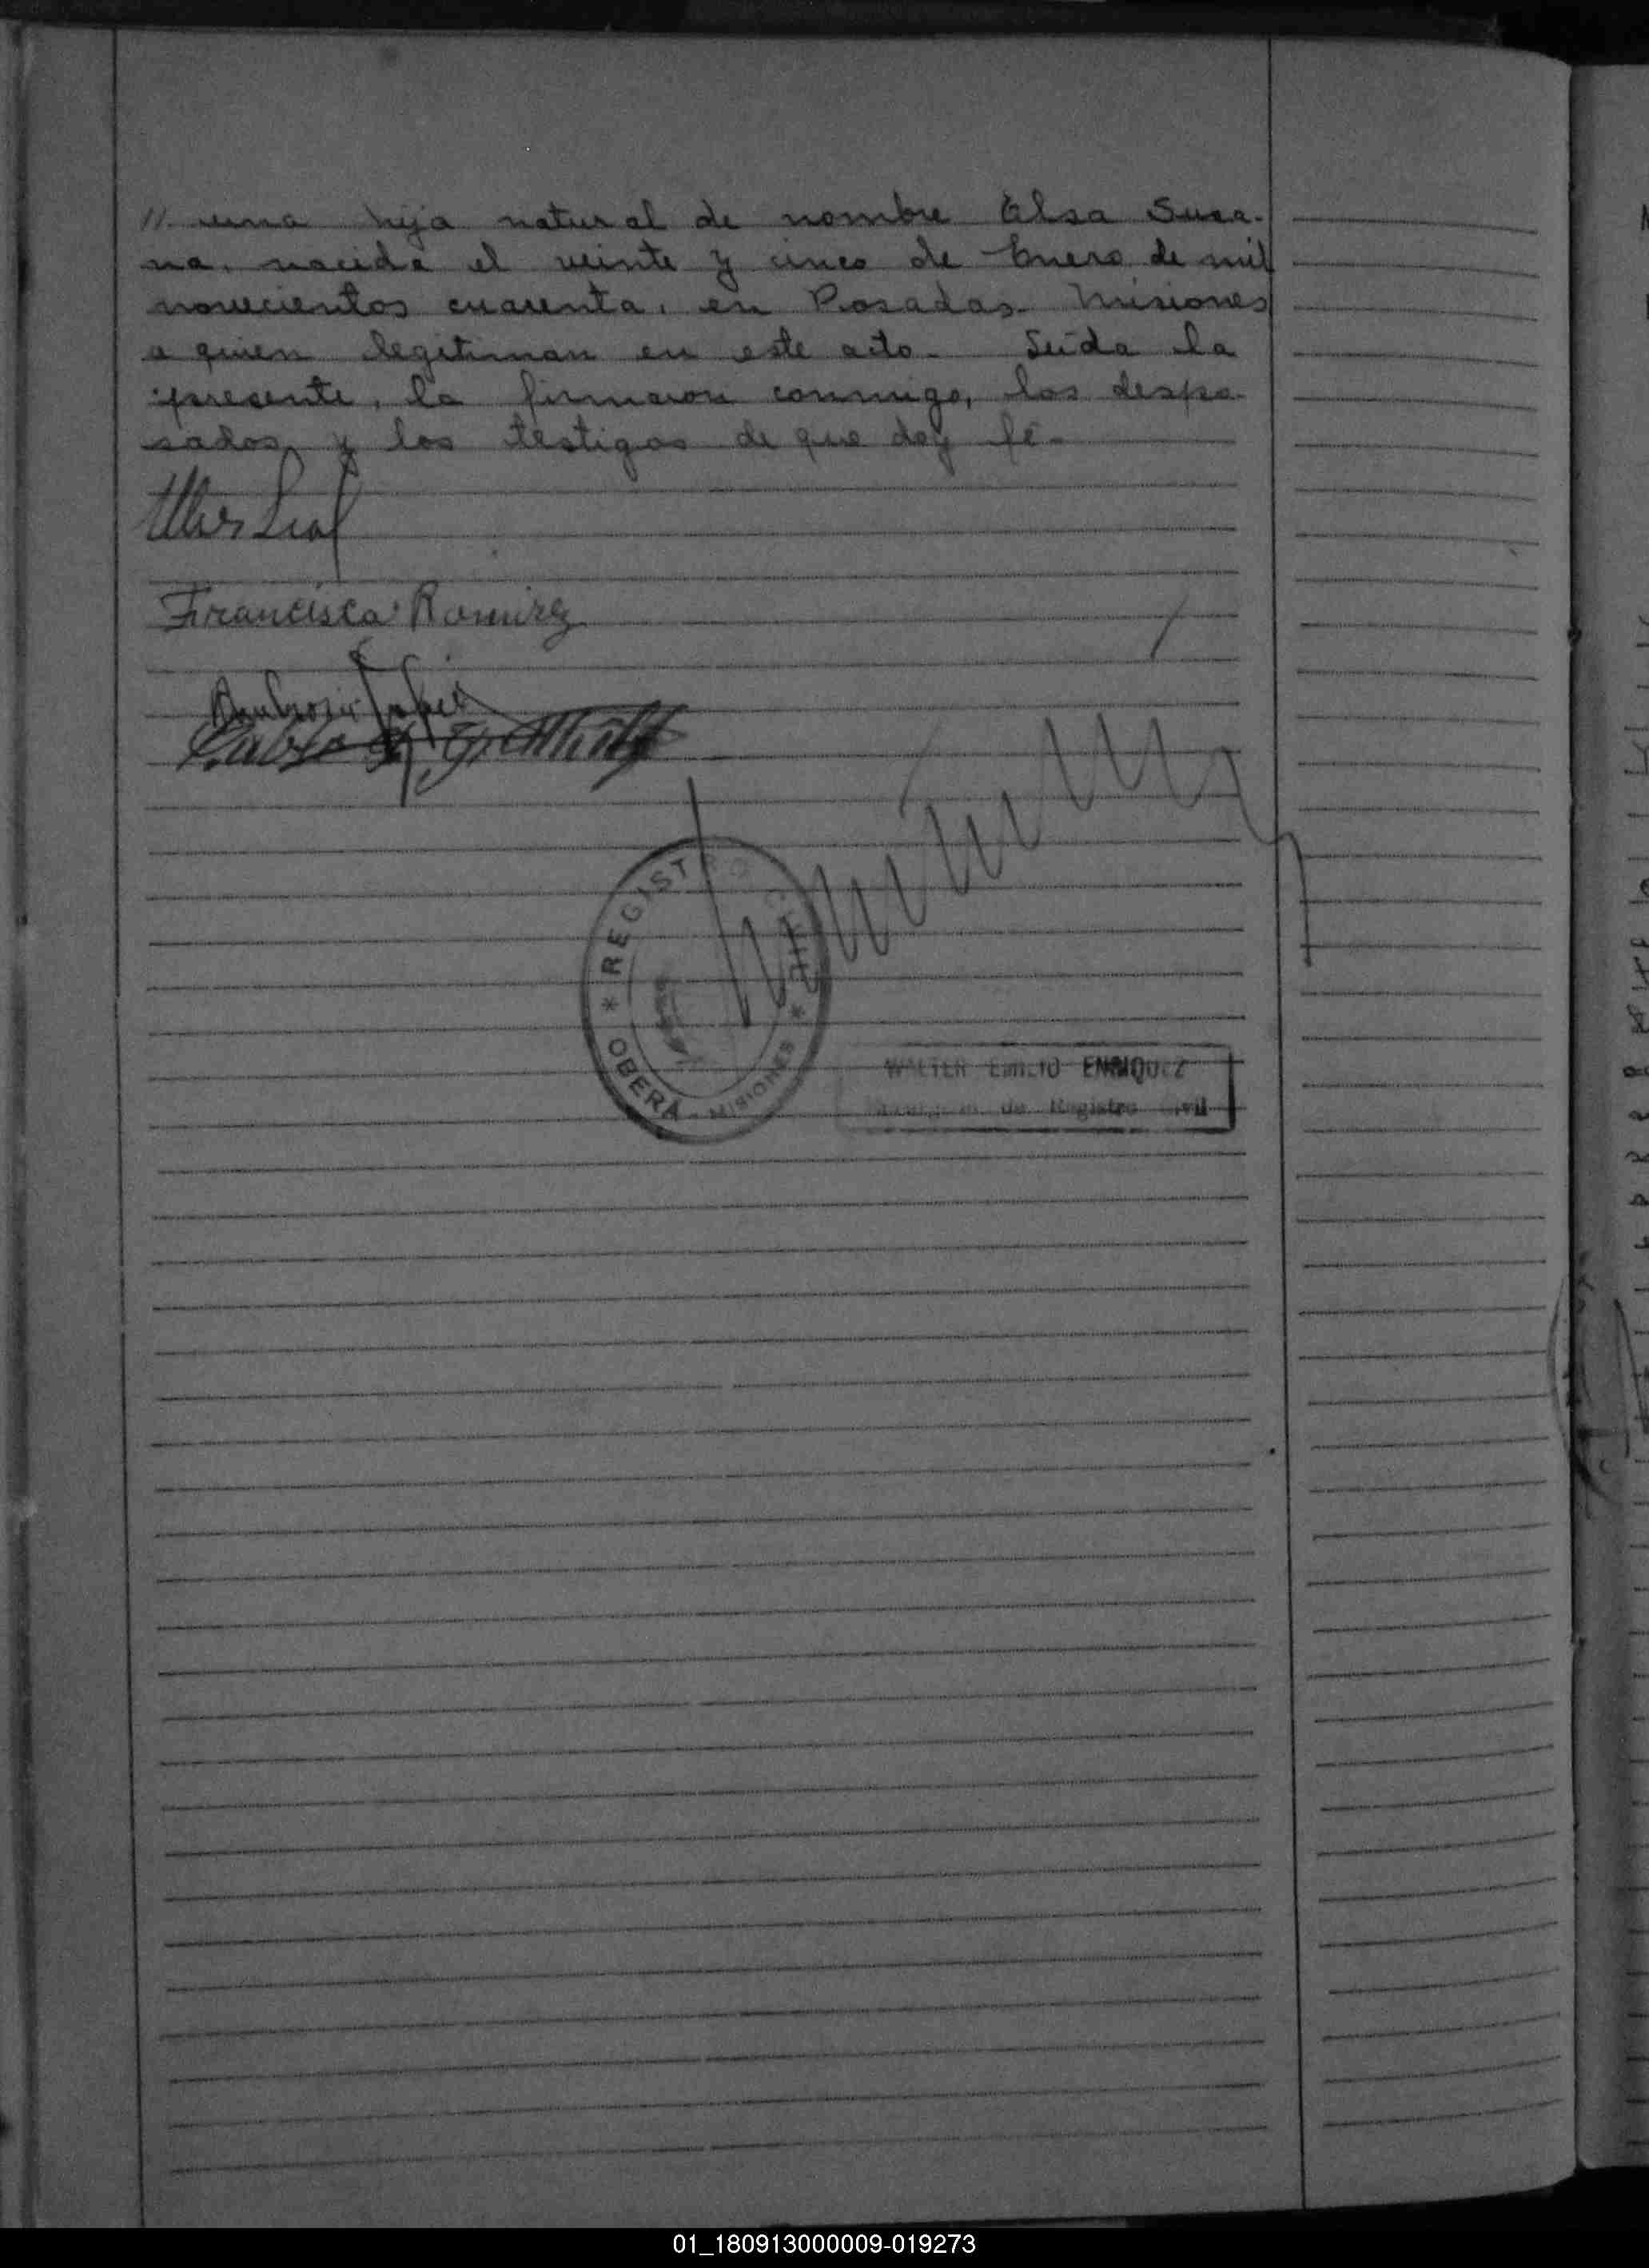 // una hija natural de nombre Elsa Susa-
na, nacida el veinte y cinco de Enero de mil
novecientos cuarenta, en Posadas - Misiones
a quien legitiman en este acto - Leída la
presente, la firmaron conmigo, los despo-
sados, y los testigos de que doy fé -
Francisca Ramirez
REGISTRO CIVIL
OBERÁ - MISIONES
WALTER Emilio ENRIQUEZ
de Registro Civil
01_180913000009-019273